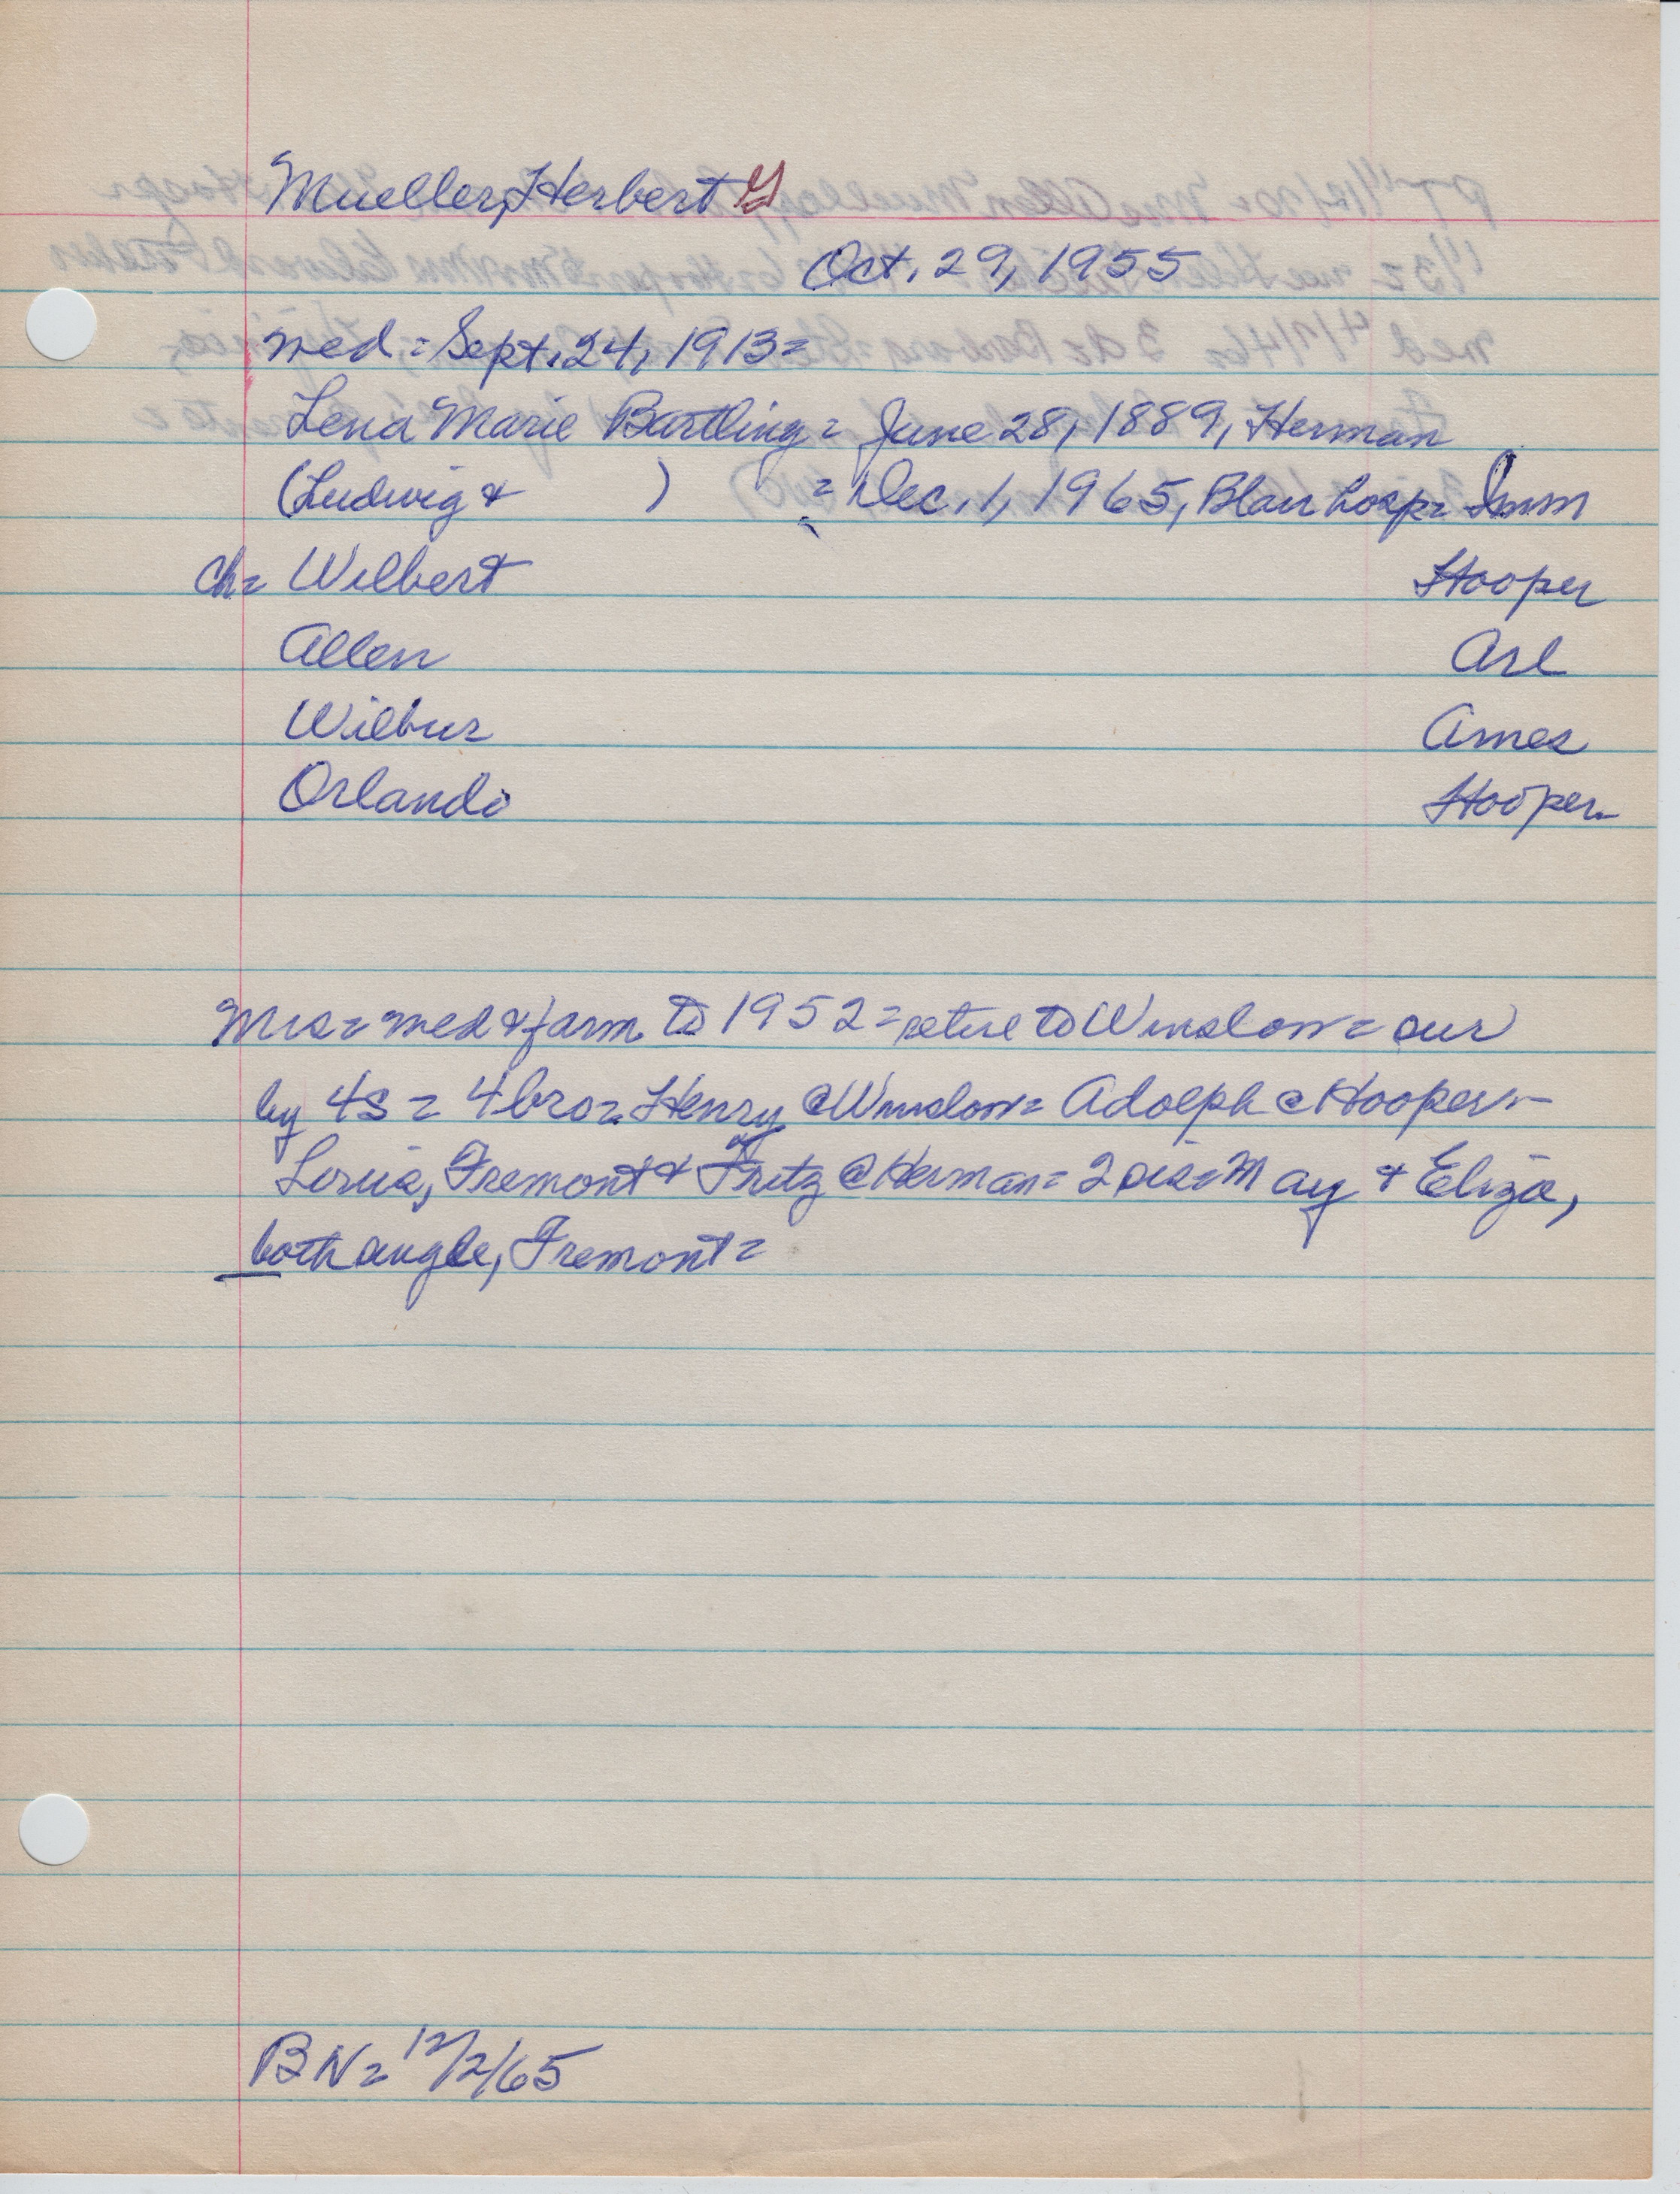 Mueller, Herbert G
Oct. 29, 1955
med = Sept. 24, 1913 =
Lena Marie Bartling = June 28, 1889, Herman
(Ludwig &          ) = Dec. 1, 1965, Blair hosp = Imm
ch = Wilbert Hooper
Allen Arl
Wilbur Ames
Orlando Hooper
Mrs = med & farm to 1952 = retire to Winslow = sur
by 4s = 4 bro = Henry @ Winslow = Adolph @ Hooper =
Louis, Fremont & Fritz @ Herman = 2 sis = May & Eliza,
both angle, Fremont =
BN = 12/2/65